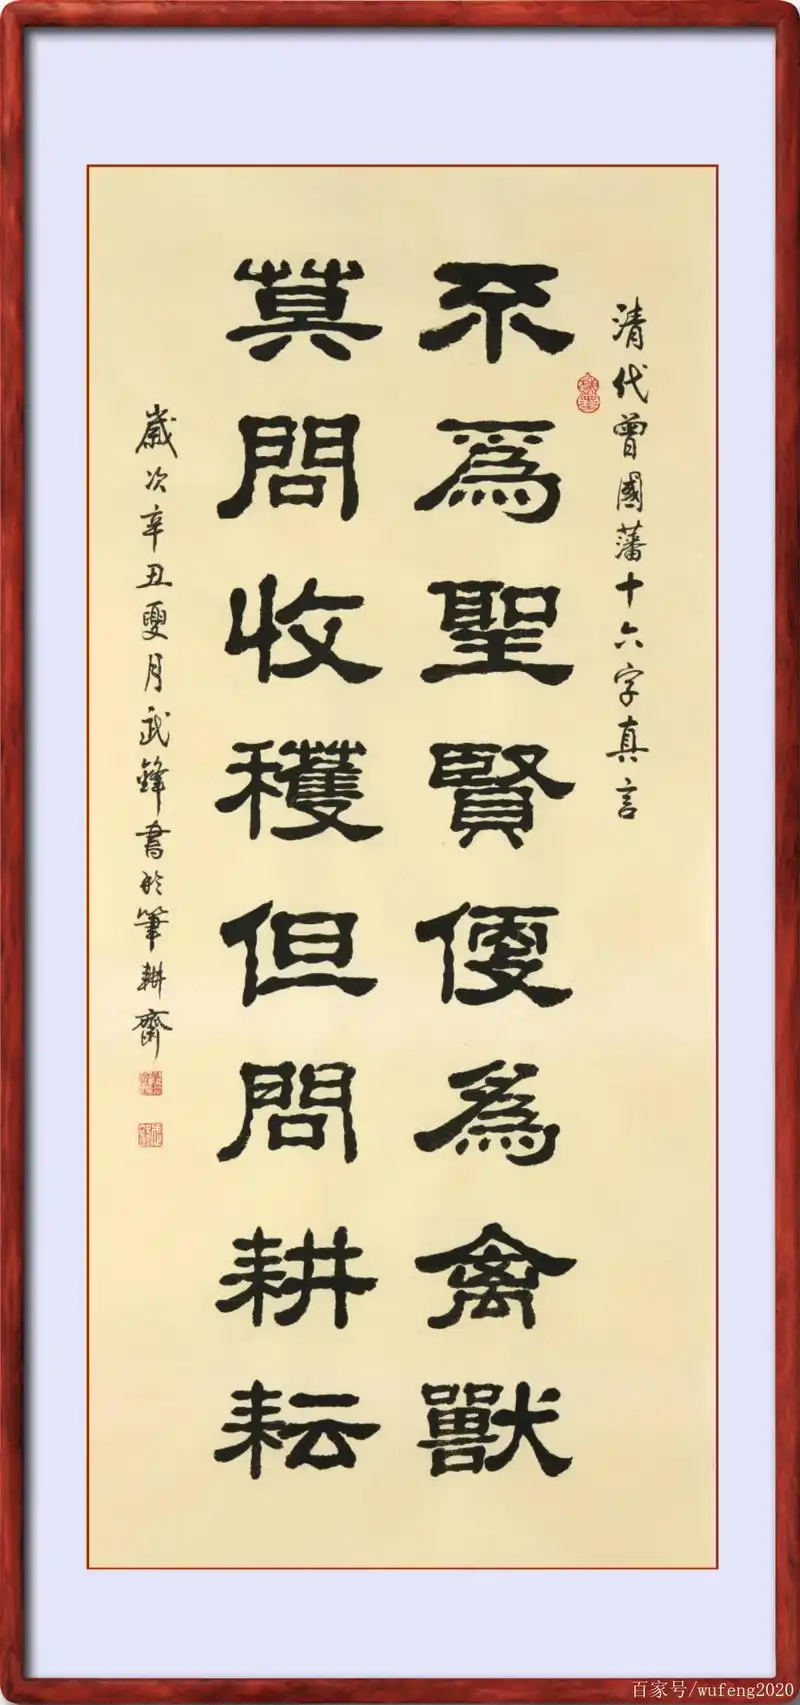 清代曾國藩十六字真言
不為聖賢便為禽獸
莫問收穫但問耕耘
歲次辛丑夏月武鋒書於筆耕齋
百家号/wufeng2020